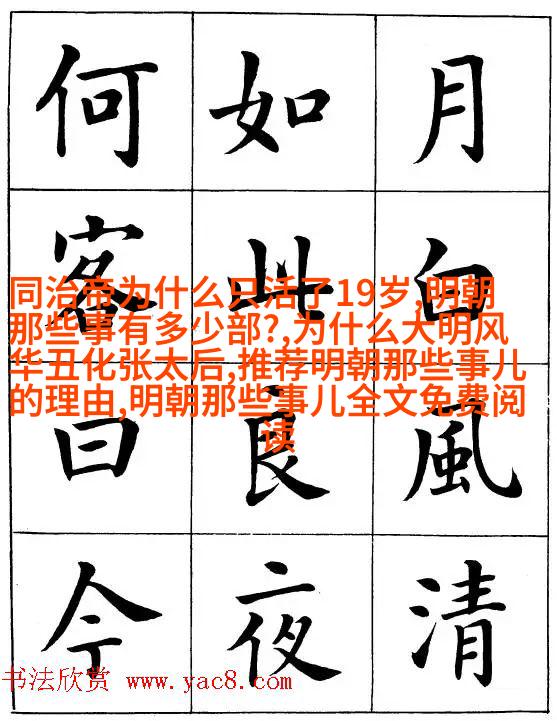 月白風清
如此良夜
何客曰今
同治帝为什么只活了19岁,明朝
那些事有多少部?,为什么大明风
华丑化张太后,推荐明朝那些事儿
的理由,明朝那些事儿全文免费阅
读
书法欣赏 www.yac8.com